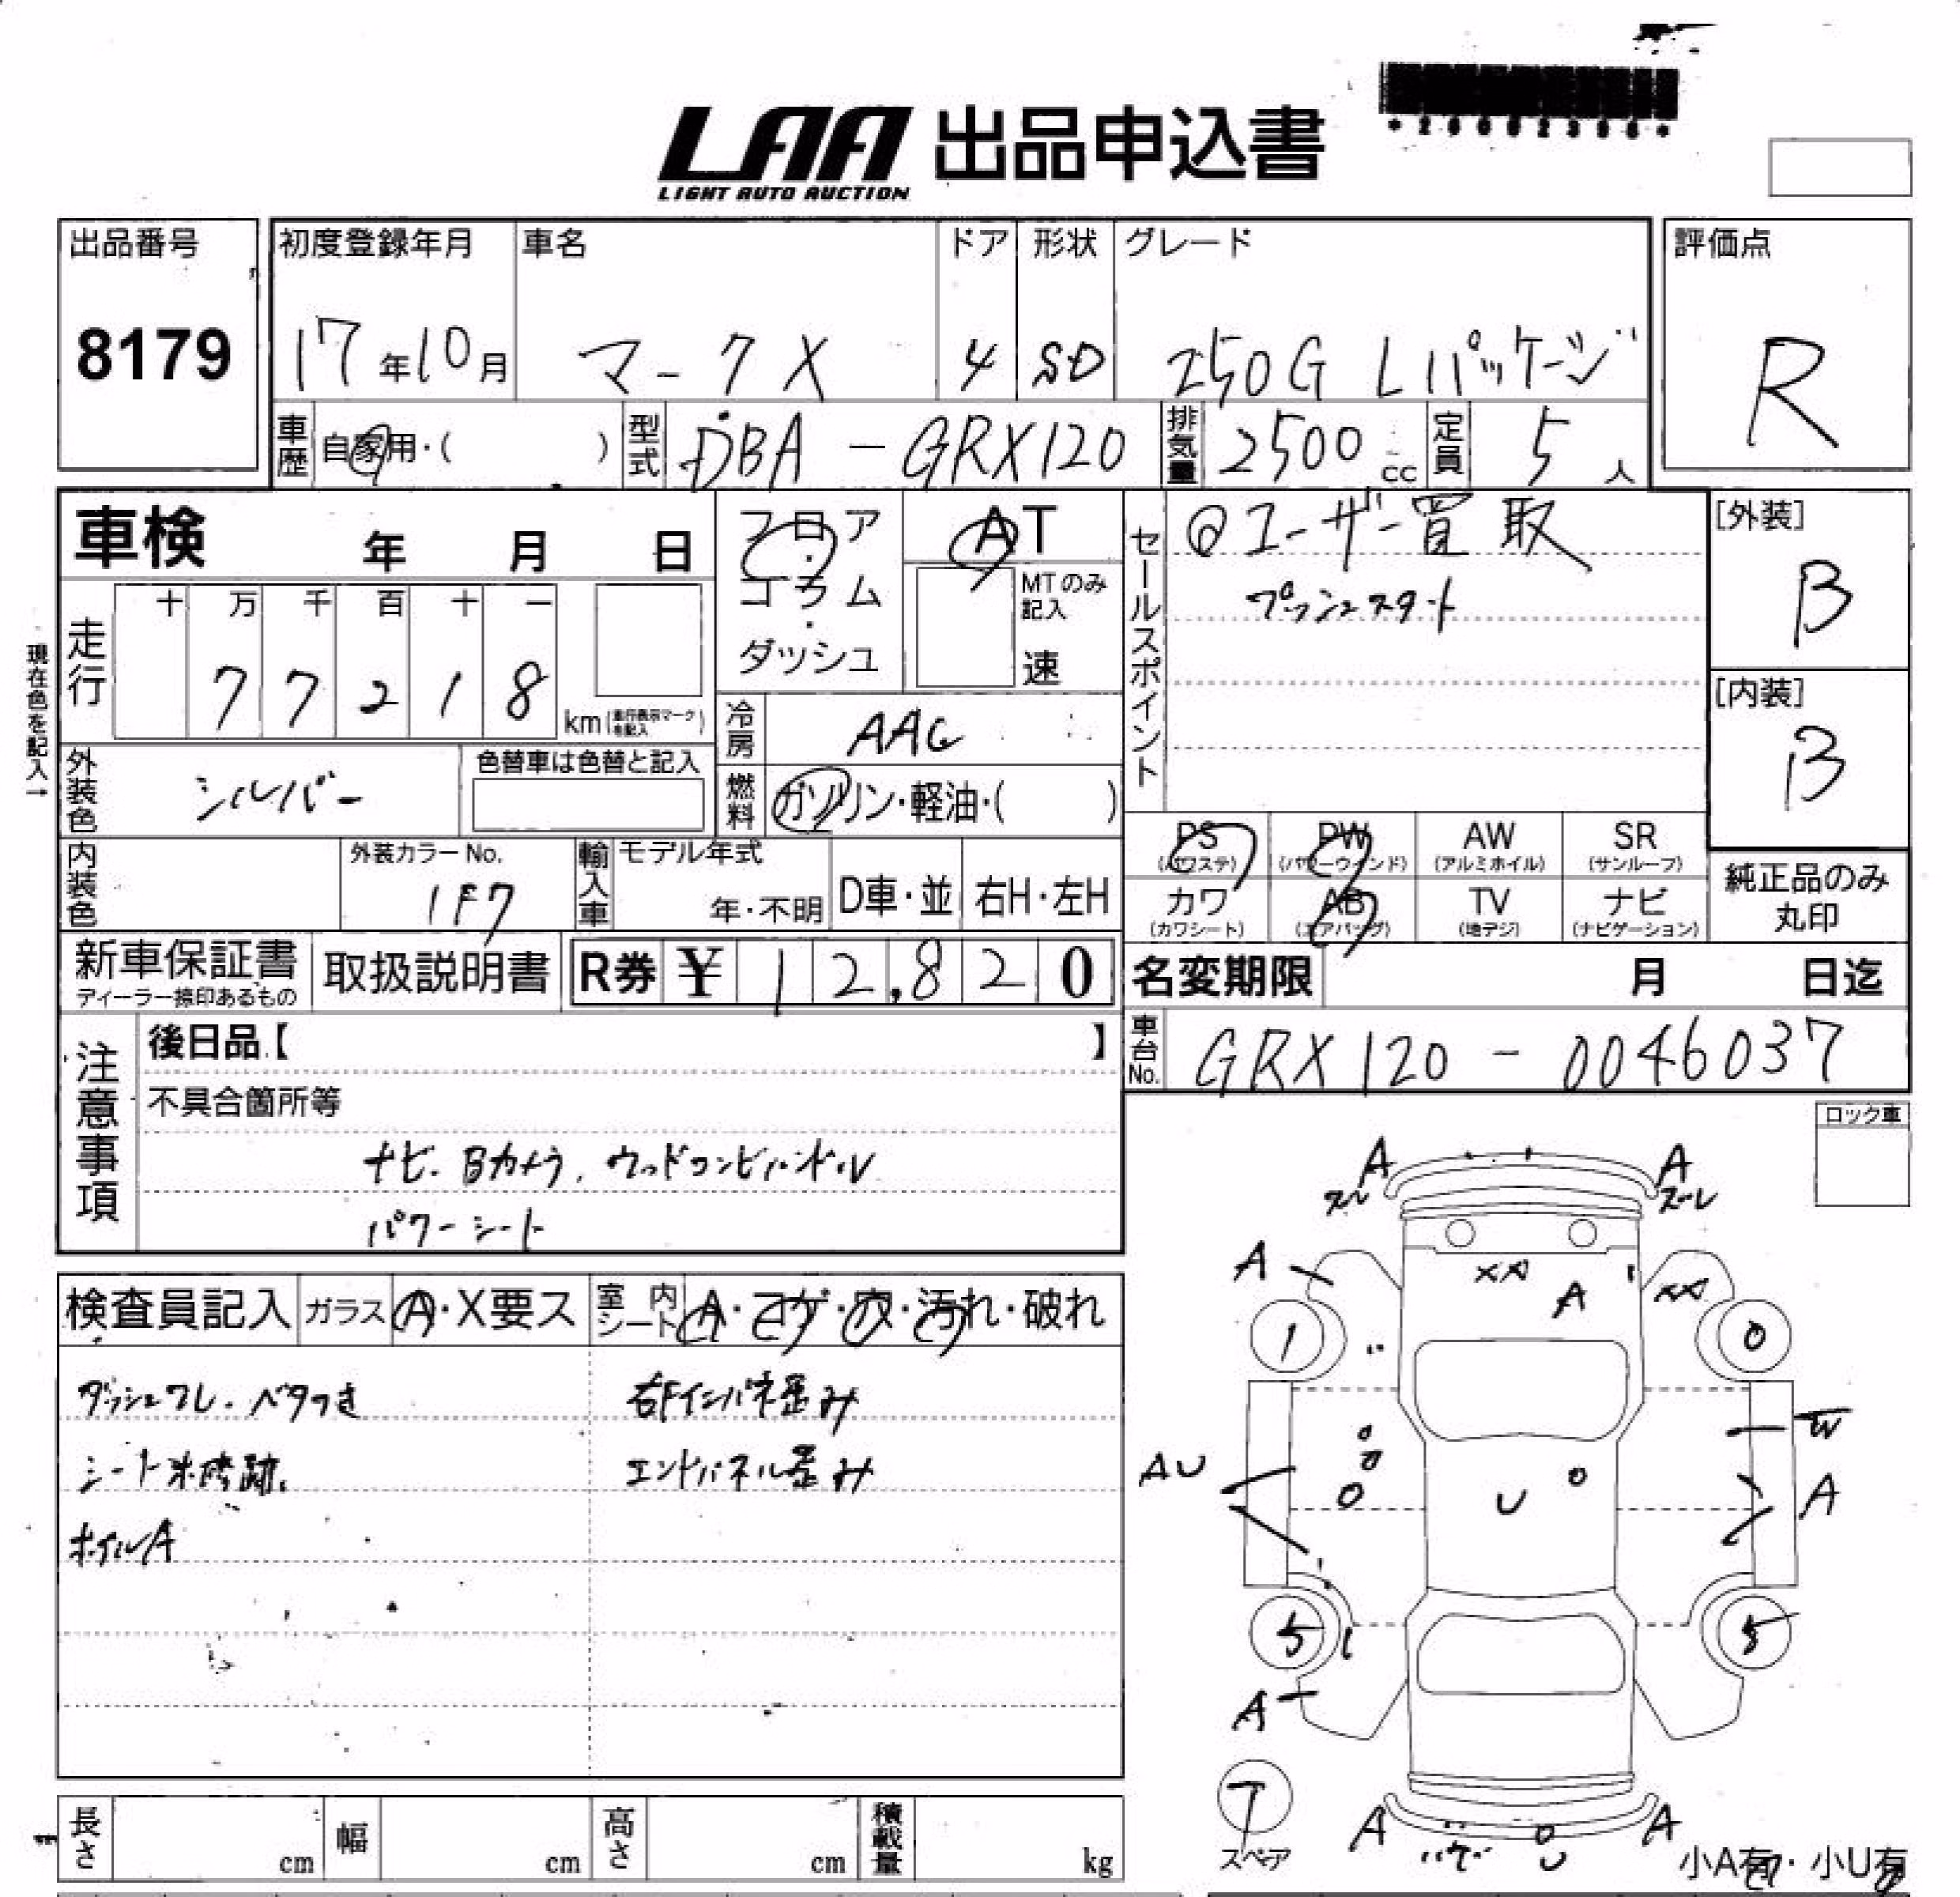 LAA 出品申込書
LIGHT AUTO AUCTION
出品番号 初度登録年月 車名 ドア 形状 グレード 評価点
8179 17年10月 マークX 4 SD 250G Lパッケージ R
車歴 自家用・( ) 型式 DBA-GRX120 排気量 2500cc 定員 5人
車検 年 月 日
フロア・コラム・ダッシュ
AT
MTのみ記入
速
セールスポイント
@ユーザー買取
プッシュスタート
[外装]
B
[内装]
B
現在色を記入→
走行 十 万 千 百 十 一
77218 km(走行表示マークを記入)
冷房 AAC
外装色 シルバー 色替車は色替と記入
燃料 ガソリン・軽油・( )
PS (パワステ) PW (パワーウィンド) AW (アルミホイル) SR (サンルーフ)
カワ (カワシート) AB (エアバッグ) TV (地デジ) ナビ (ナビゲーション)
純正品のみ
丸印
内装色 外装カラーNo. 1F7 輸入車 モデル年式 年・不明 D車・並 右H・左H
新車保証書 取扱説明書 R券 ¥12,820
ディーラー捺印あるもの
名変期限 月 日迄
車台No. GRX120-0046037
注意事項
後日品【 】
不具合箇所等
ナビ、Bカメラ、ウッドコンビハンドル
パワーシート
ロック車
検査員記入 ガラス A・X要ス 室内シート A・コゲ・穴・汚れ・破れ
ダッシュワレ・ベタつき 右Fインパネ歪み
エンドパネル歪み
ホイルA
A A
ズレ ズレ
A XA A XA
1 0
W
AU U A
5 5
A
スペア
A A
小A有・小U有
長さ cm 幅 cm 高さ cm 積載量 kg